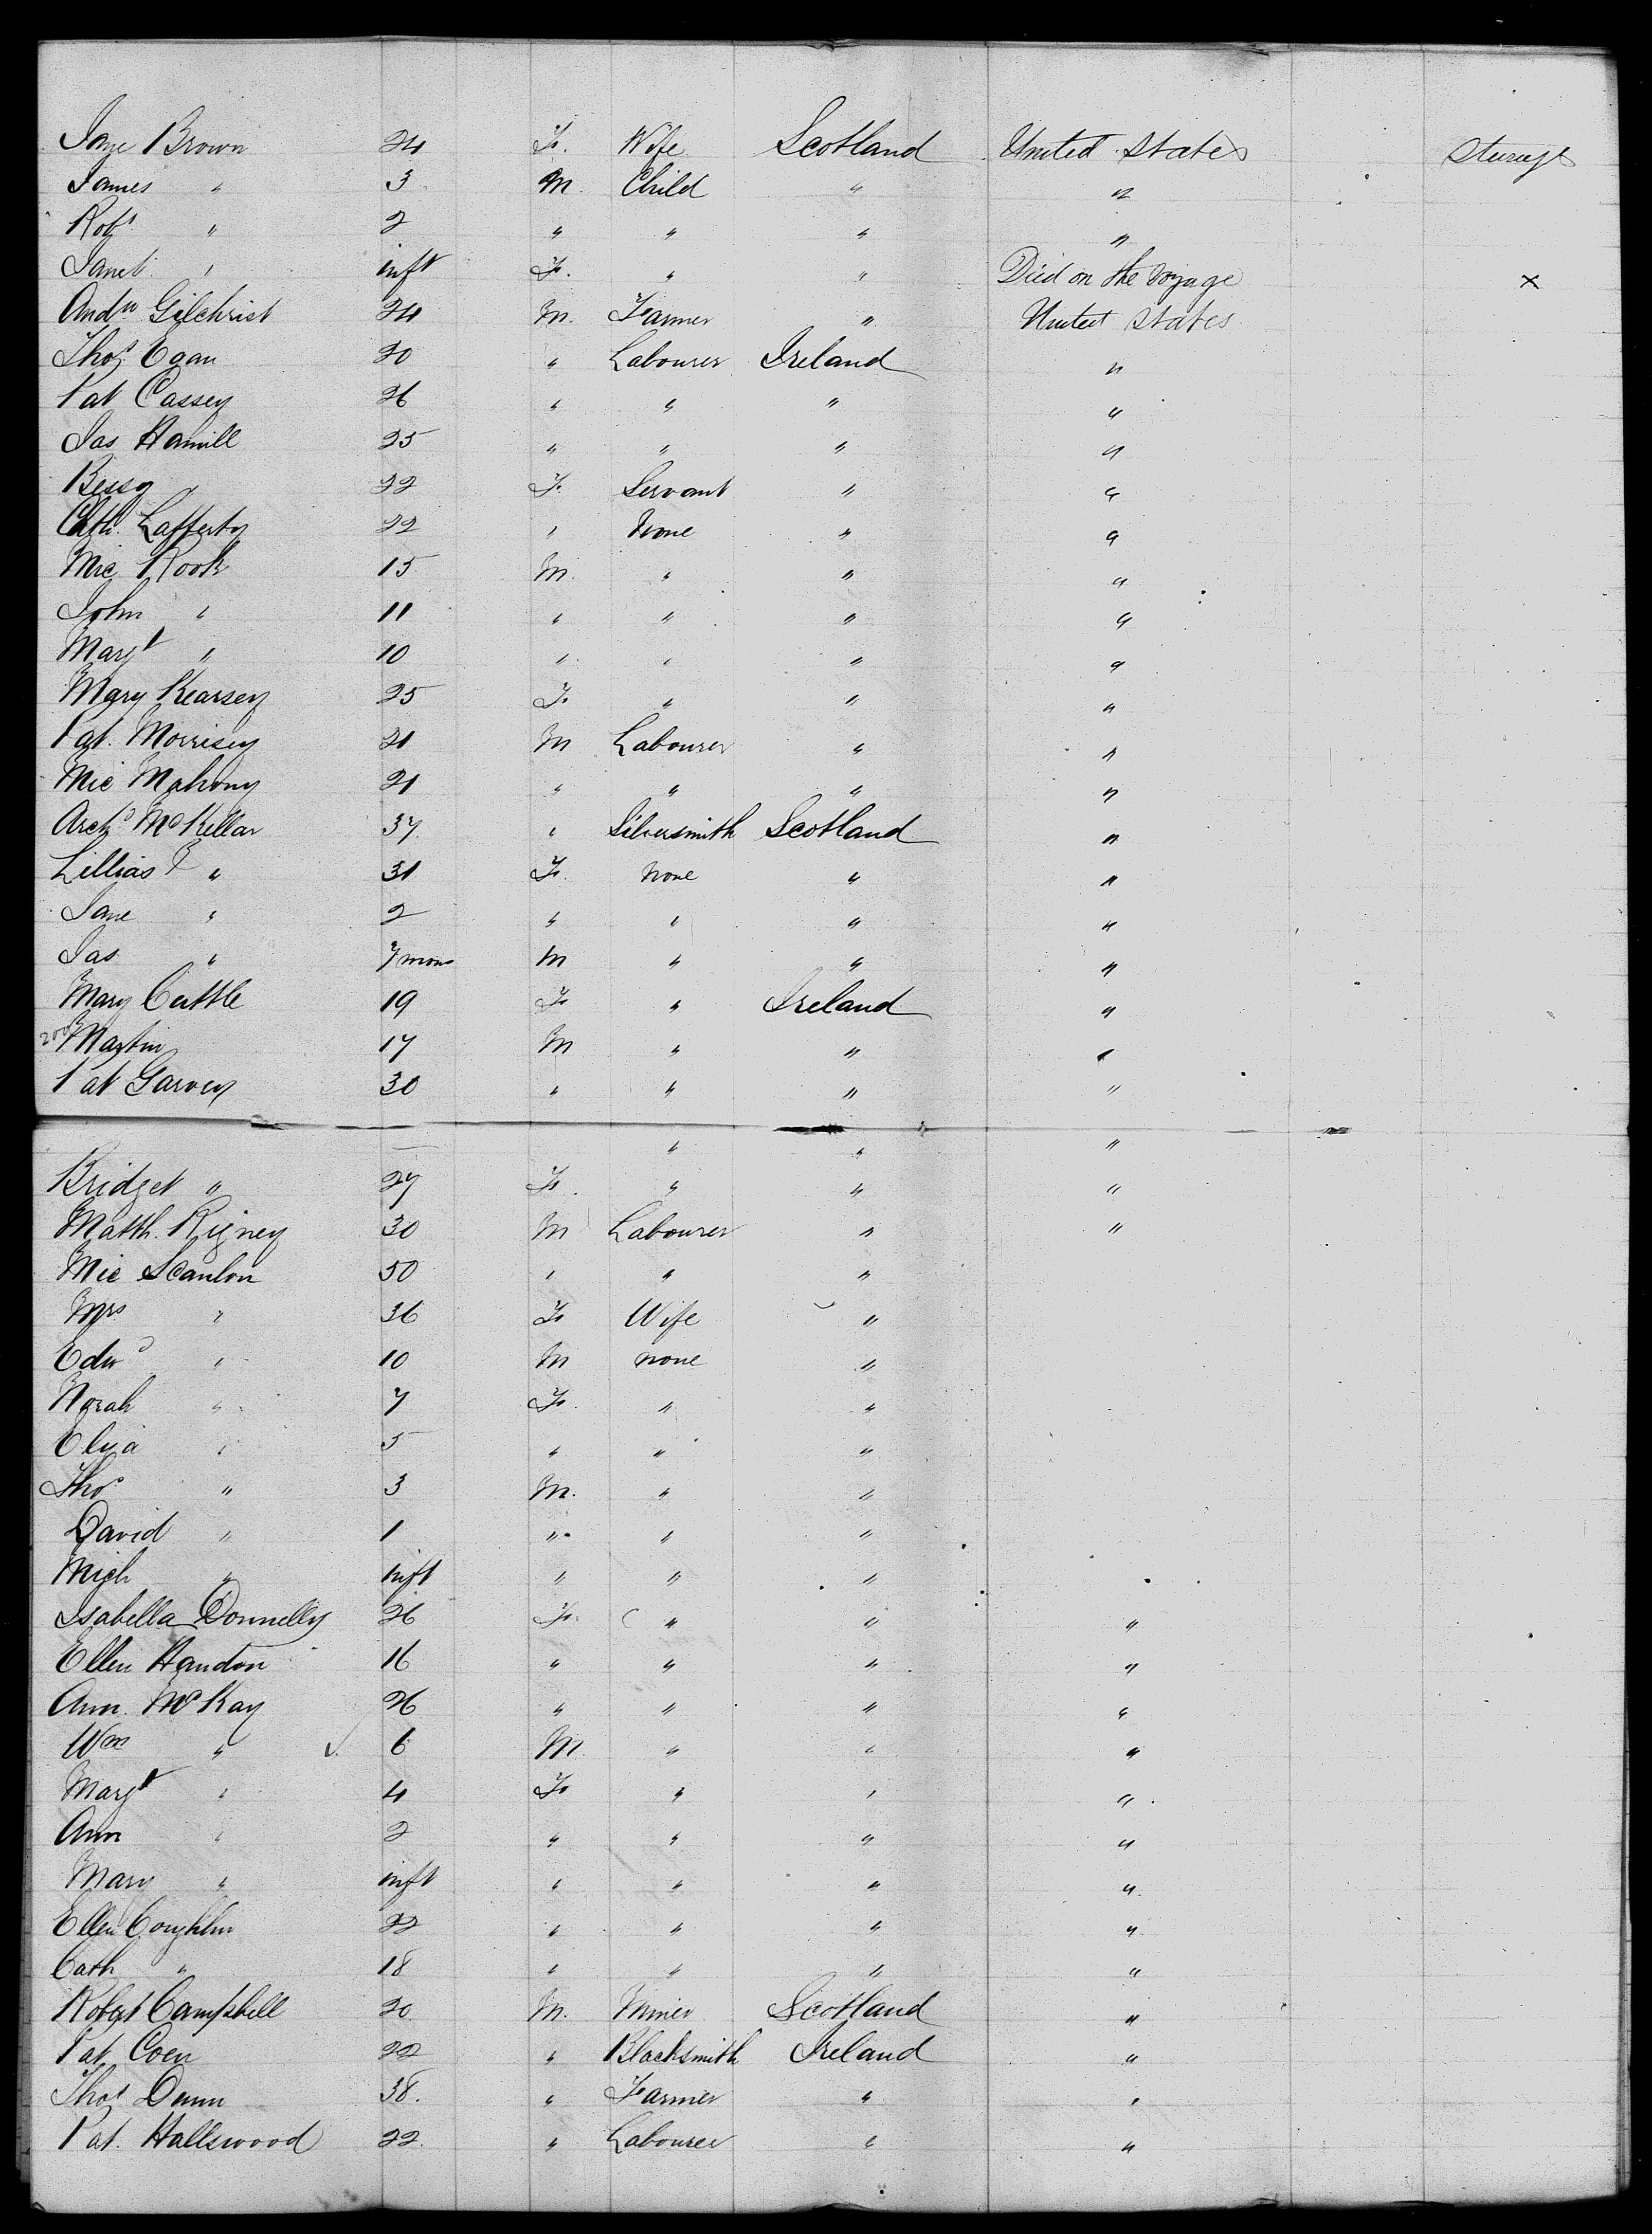 Jane Brown 24 F. Wife Scotland United States Steerage
James " 3 M. Child " "
Robt " 2 " " " "
Janet " inft F. " " Died on the Voyage x
Andw Gilchrist 24 M. Farmer " United States
Thos Egan 20 " Labourer Ireland "
Pat Cassey 26 " " " "
Jas Hamill 25 " " " "
Bessy " 22 F. Servant " "
Cath. Lafferty 22 " None " "
Mic Rook 15 M " " "
John " 11 " " " "
Margt " 10 " " " "
Mary Kearsey 25 F. " " "
Pat. Morrisey 21 M Labourer " "
Mic Mahony 21 " " " "
Archd McKellar 37 " Silversmith Scotland "
Lillias " 31 F. None " "
Jane " 2 " " " "
Jas " 7 mons M " " "
Mary Cuttle 19 F. " Ireland "
200 Martin 17 M " " "
Pat Garvey 30 " " " "
" " "
Bridget " 27 F. " " "
Matth. Rigney 30 M Labourer " "
Mic Scanlon 50 " " "
Mrs " 36 F. Wife "
Edwd " 10 M none "
Norah " 7 F. " "
Eliza " 5 " " "
Thos " 3 M. " "
David " 1 " " "
Mich " inft " " "
Isabella Donnelly 26 F. " " "
Ellen Handon 16 " " " "
Ann. McKay 26 " " " "
Wm " 6 M. " " "
Margt " 4 F. " " "
Ann " 2 " " " "
Mary " inft " " " "
Ellen Coughlin 22 " " " "
Cath " 18 " " " "
Robert Campbell 20 M. Miner Scotland "
Pat Coen 22 " Blacksmith Ireland "
Thos Dunn 38. " Farmer " "
Pat. Hallswood 22. " Labourer " "